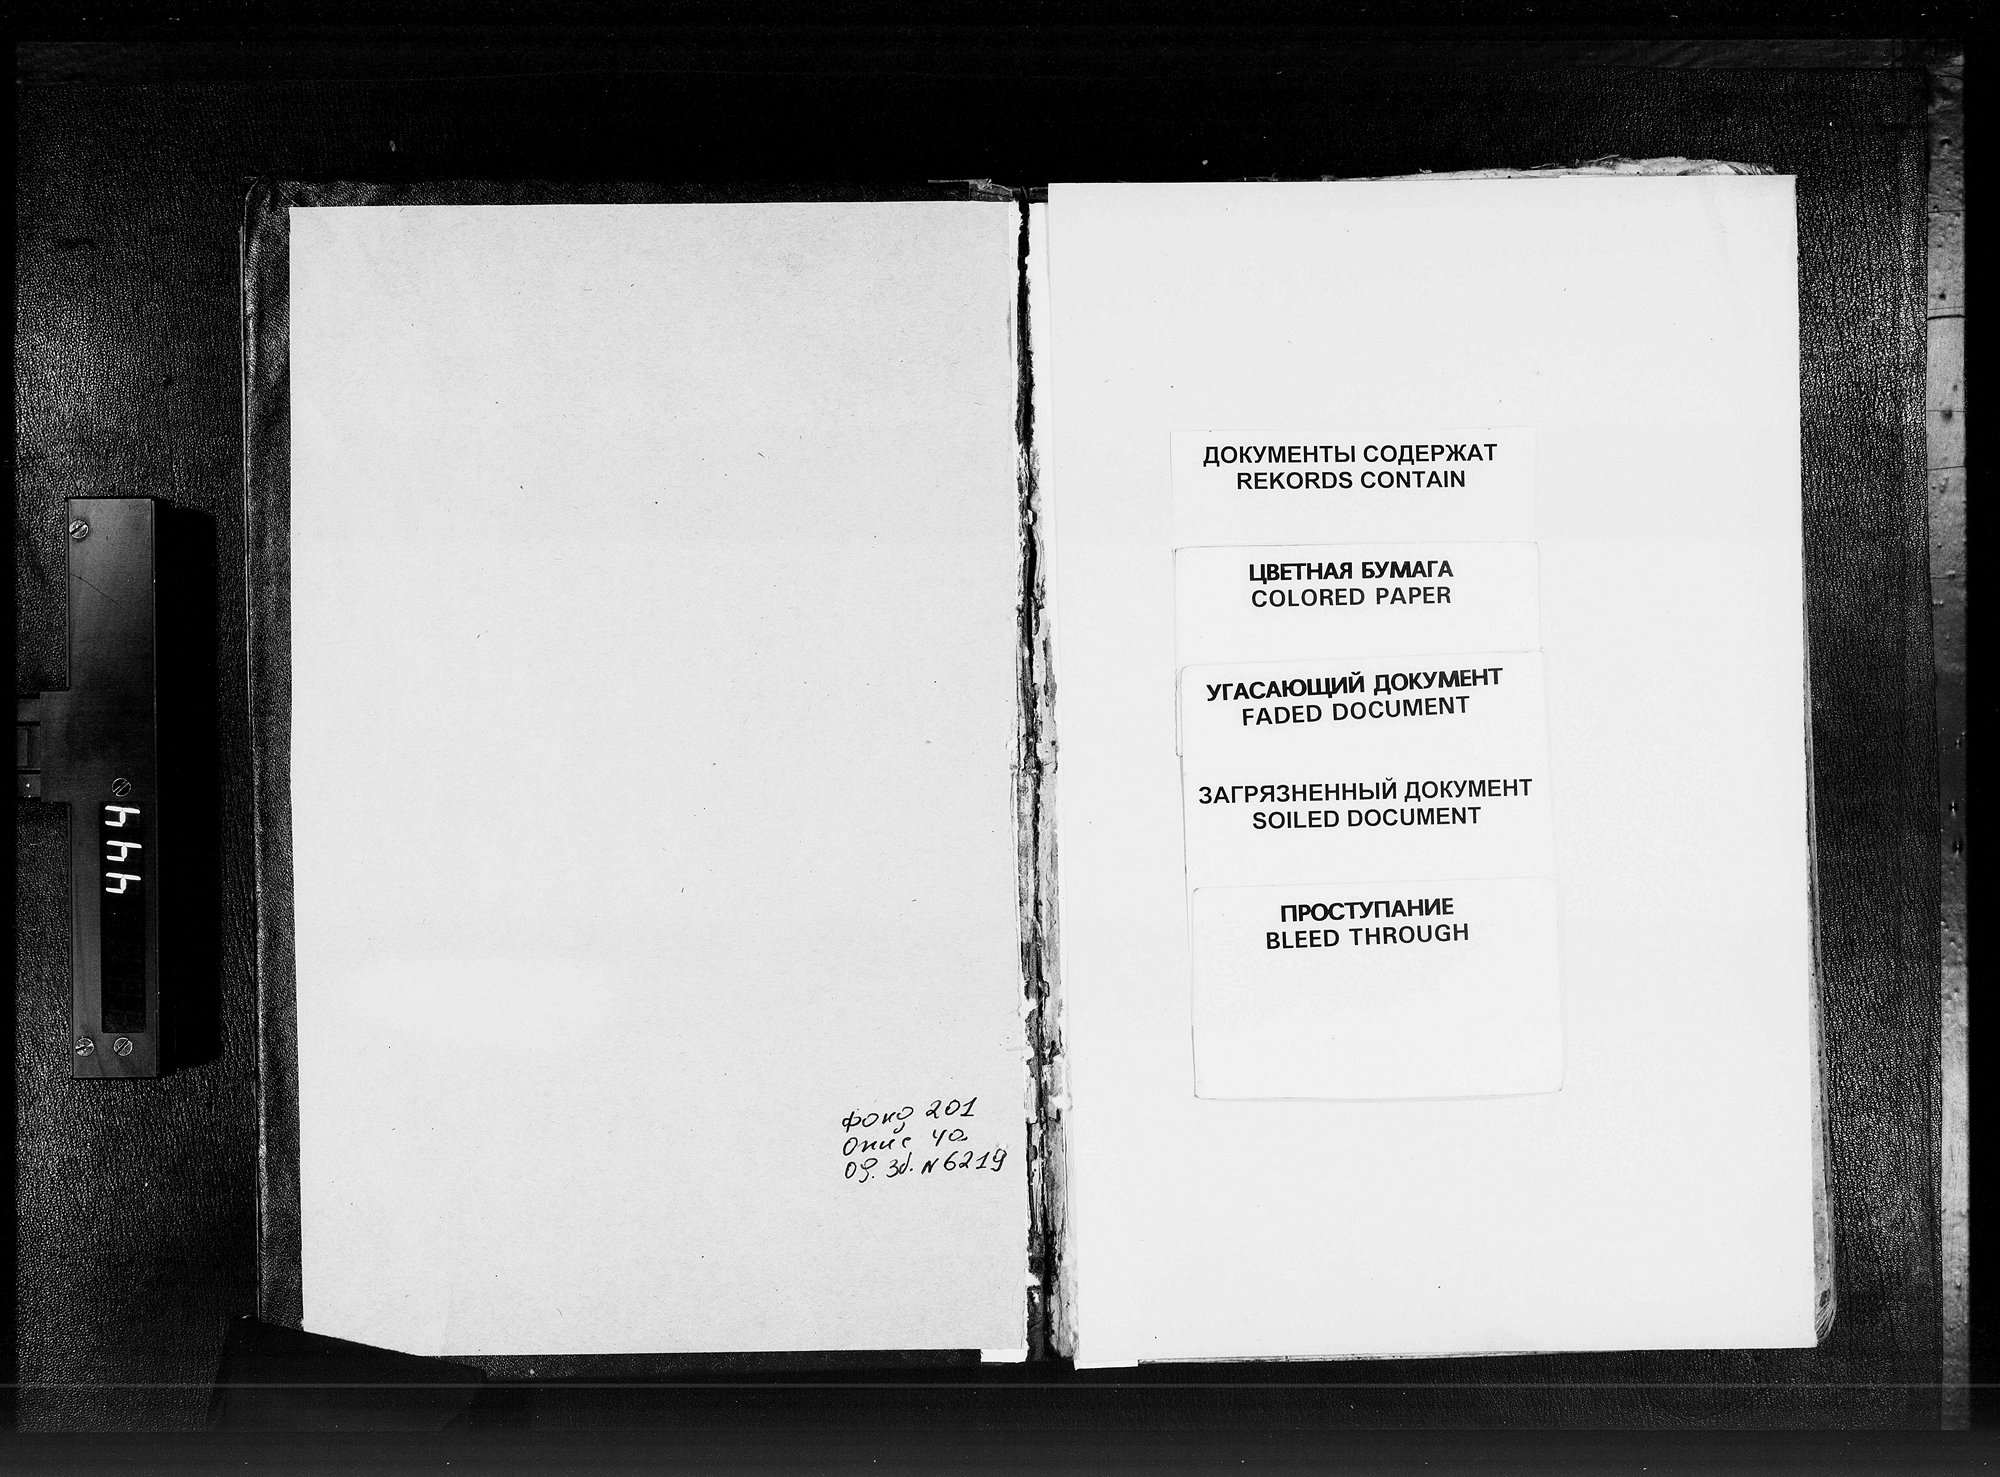 444
фонд 201
опис 4а
од. зб. N 6219
ДОКУМЕНТЫ СОДЕРЖАТ
REKORDS CONTAIN
ЦВЕТНАЯ БУМАГА
COLORED PAPER
УГАСАЮЩИЙ ДОКУМЕНТ
FADED DOCUMENT
ЗАГРЯЗНЕННЫЙ ДОКУМЕНТ
SOILED DOCUMENT
ПРОСТУПАНИЕ
BLEED THROUGH